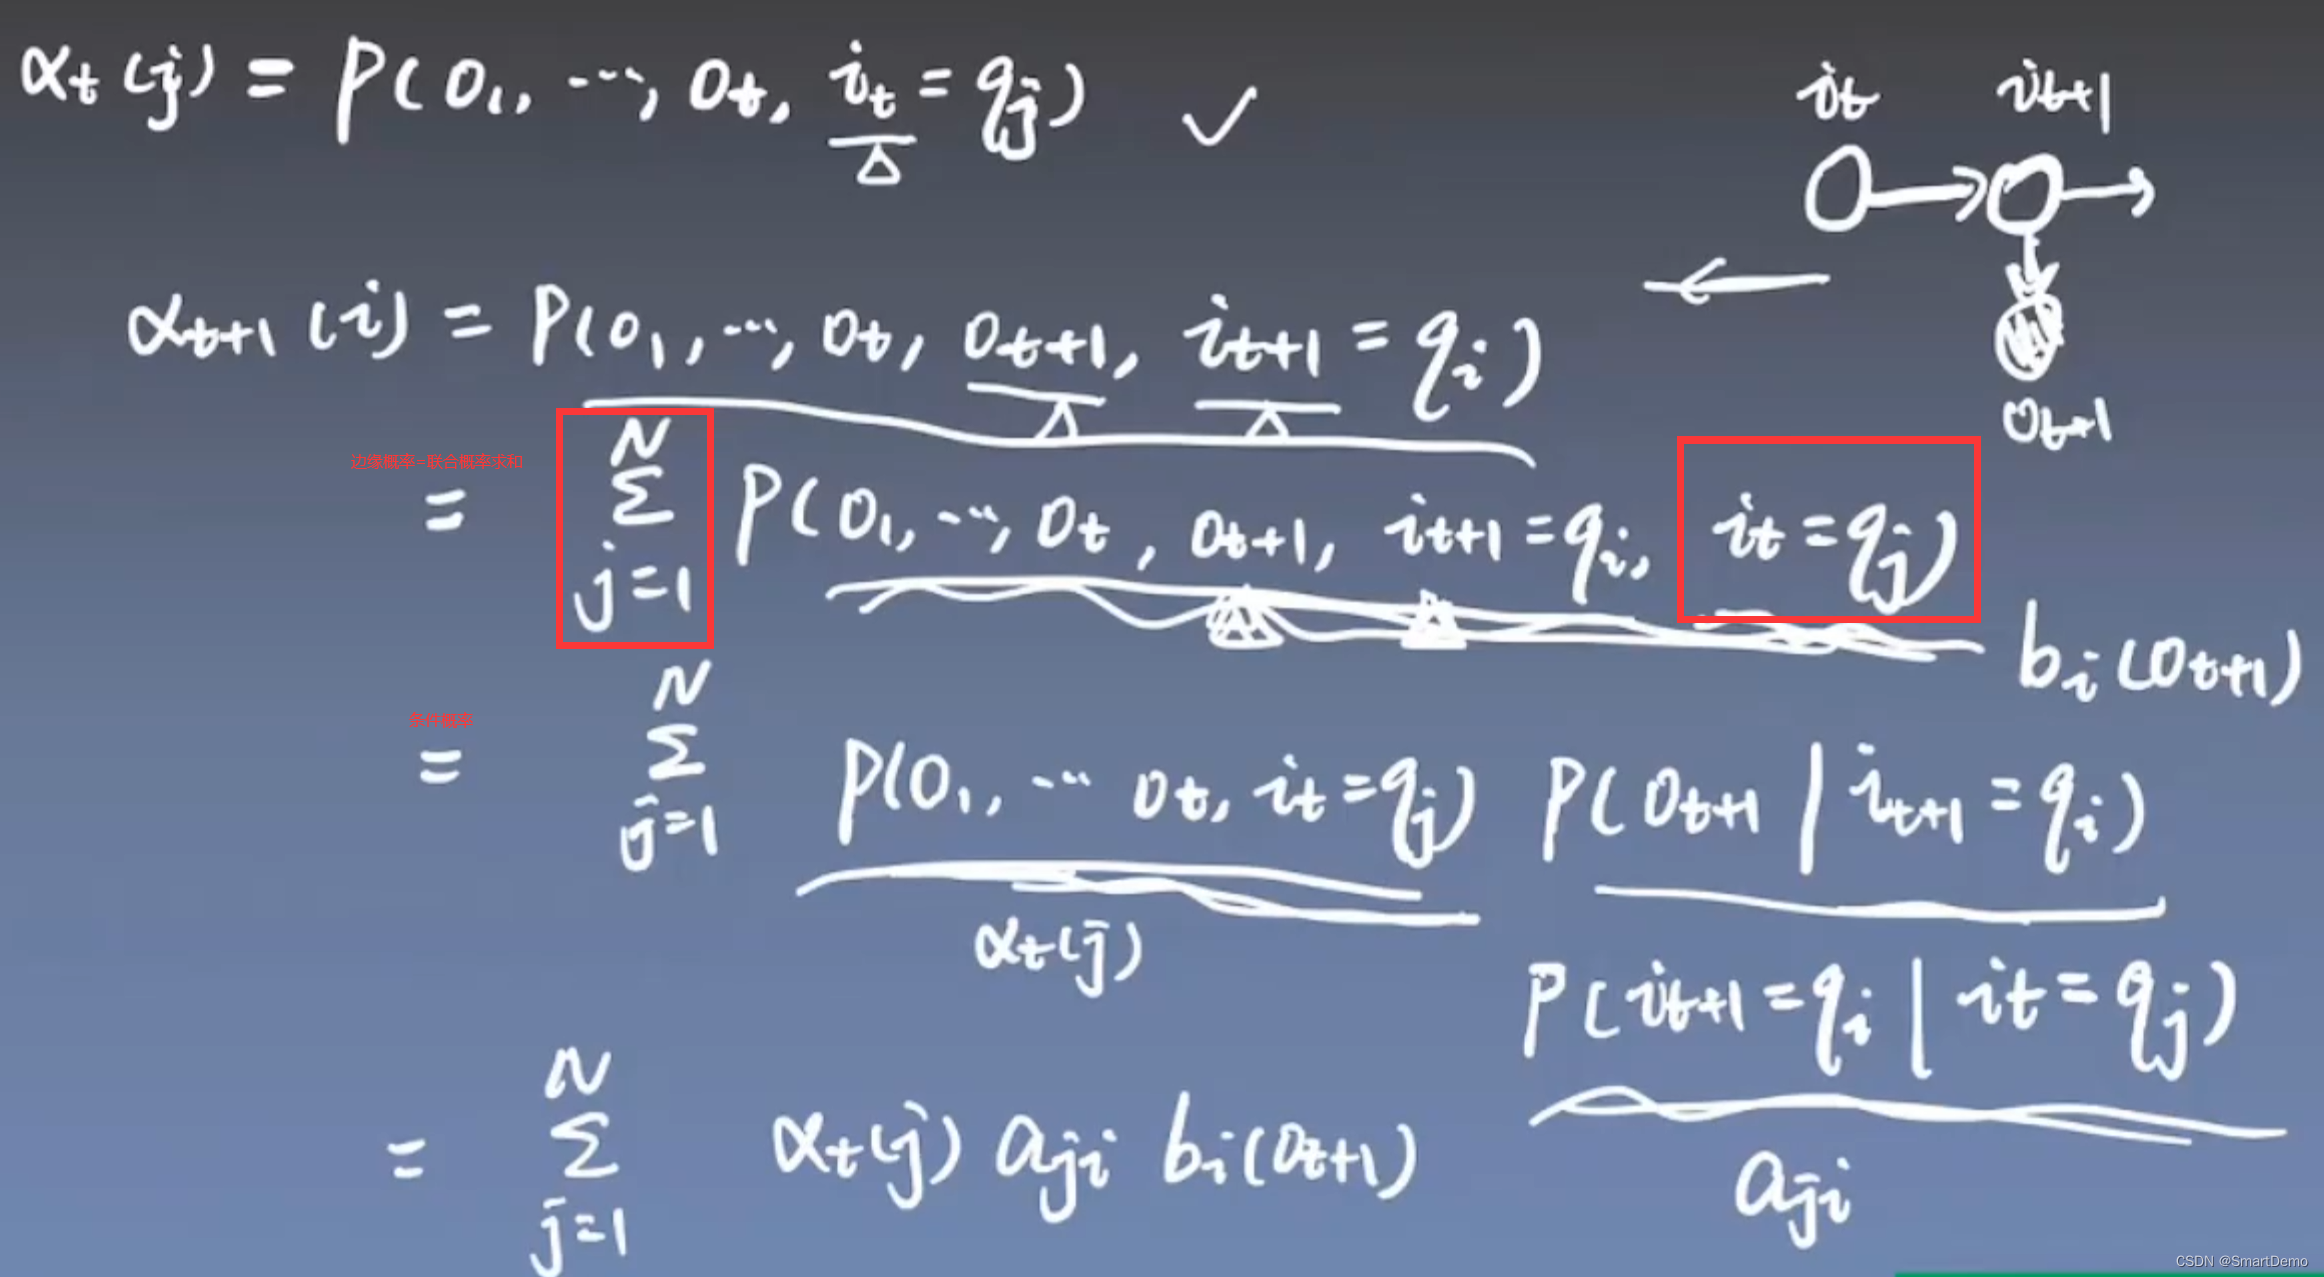 αt(j) = P(O1, ..., Ot, it = qj) ✓
it it+1
αt+1(i) = P(O1, ..., Ot, Ot+1, it+1 = qi)
Ot+1
边缘概率=联合概率求和
= N Σ j=1 P(O1, ..., Ot, Ot+1, it+1 = qi, it = qj)
bi(Ot+1)
条件概率
= N Σ j=1 P(O1, ... Ot, it = qj) P(Ot+1 | it+1 = qi)
αt(j)
P(it+1 = qi | it = qj)
= N Σ j=1 αt(j) aji bi(Ot+1)
aji
CSDN @SmartDemo